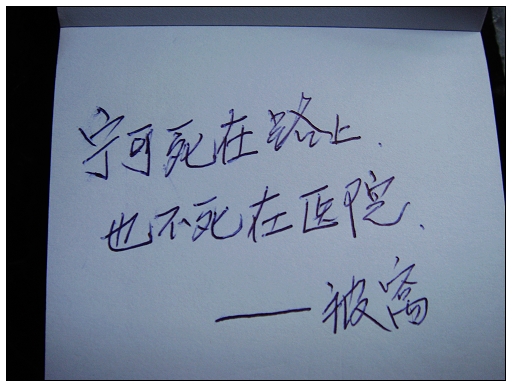 宁可死在路上.
也不死在医院.
——被窝